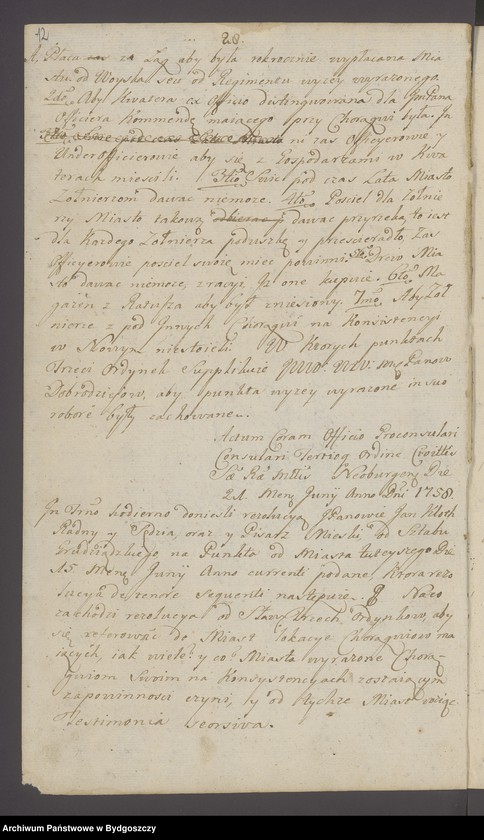 12
20.
A. Płaca za Łag aby była rokrocznie wypłacana Mia
stu od Woyska seu od Regimentu wyzey wyrazonego.
2do Aby Kwatera ex Officio distingwowana dla Jmć Pana
Officiera Kommendę maiącego przy Chorągwi była. Ja
ni zas Officyerowie y
Underofficierowie aby się z Gospodarzami w Kwa
terach miescili. 3tio pod czas Lata Miasto
Zołnierzom dawac niemoze. 4to Posciel dla Zołnie
rzy Miasto takową dawac przyrzeka, to iest
dla Kazdego Zołnierza poduszkę y przescieradło, Zas
Officyerowie posciel swoię miec powinni. 5to Drew Mia
sto dawac niemoze, z racyi, Iz one kupuie. 6to Ma
gazen z Ratusza aby był zniesiony. 7mo Aby Zoł
nierze z pod Innych Chorągwi na Konsistencyi
w Nowym niestoieli. W Ktorych punktach
Trzeci Ordynek Supplikuie Panow
Dobrodzieiow, aby punkta wyzey wyrazone in suo
robore były zachowane.
Actum Coram Officio Proconsulari
Consulari Tertioq Ordine Civittis
Sæ Ræ Mttis Neoburgen Die
21 Mens Juny Anno Dni 1758.
In Trno hodierno doniesli rezolucyą JPanowie Jan Kloch
Radny y Sędzia, oraz y Pisarz Mieski, od Sztabu
Grudziądzkiego na Punkta od Miasta tuteyszego Die
15 Mens Junij Anno currenti podane, Ktora rezo
lucya de tenore sequenti następuie. Naco
zachodzi rezolucya od Sław: Trzech Ordynkow, aby
się referowac do Miast lokacye Chorągwiow ma
iących, iak wiele y co Miasta wyrazone Chorą
gwiom Swoim na Konsystencyach zostaiącym
zapowinnosci czyni, ty od tychze Miast wziąc
Testimonia seorsiva.
Archiwum Państwowe w Bydgoszczy